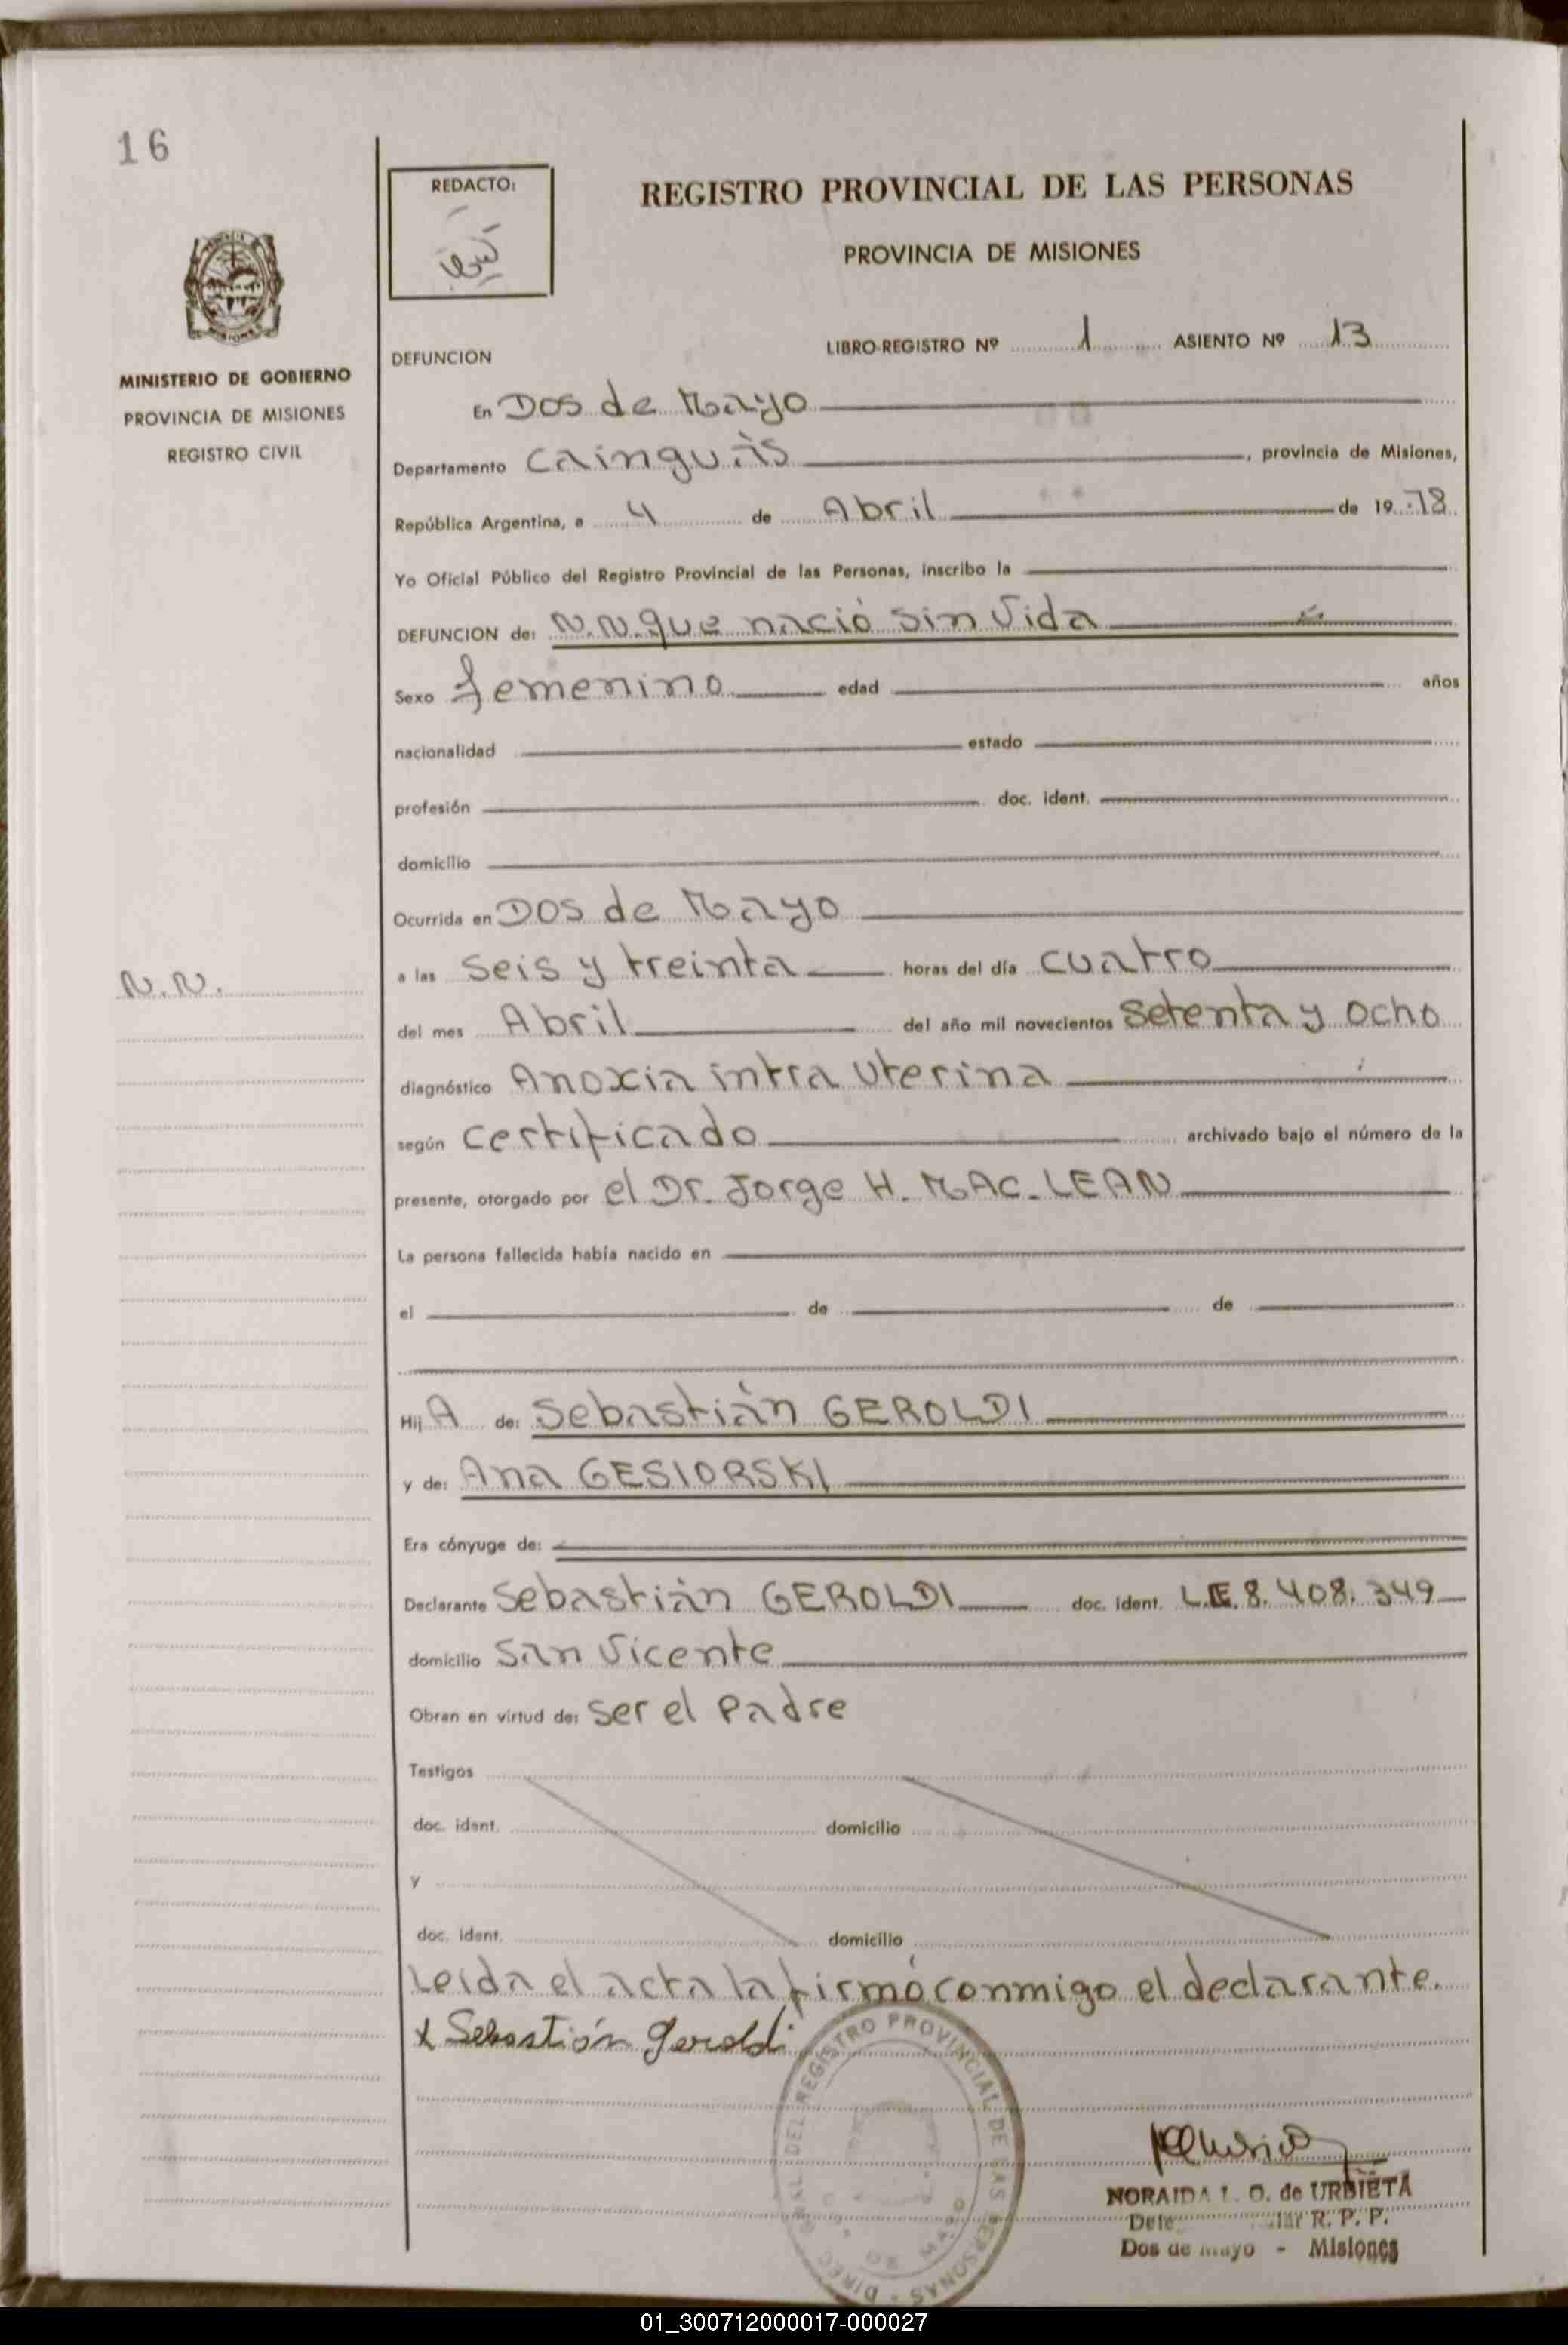 16
MINISTERIO DE GOBIERNO
PROVINCIA DE MISIONES
REGISTRO CIVIL
REDACTO:
REGISTRO PROVINCIAL DE LAS PERSONAS
PROVINCIA DE MISIONES
LIBRO-REGISTRO Nº 1 ASIENTO Nº 13
DEFUNCION
En Dos de Mayo
Departamento Cainguás, provincia de Misiones,
República Argentina, a 4 de Abril de 19 78
Yo Oficial Público del Registro Provincial de las Personas, inscribo la
DEFUNCION de: N.N. que nació sin vida
Sexo femenino edad años
nacionalidad estado
profesión doc. ident.
domicilio
Ocurrida en Dos de Mayo
N.N.
a las seis y treinta horas del día cuatro
del mes Abril del año mil novecientos setenta y ocho
diagnóstico Anoxia intra uterina
según certificado archivado bajo el número de la
presente, otorgado por el Dr. Jorge H. MAC. LEAN
La persona fallecida había nacido en
el de de
Hij A de: Sebastián GEROLDI
y de: Ana GESIORSKI
Era cónyuge de:
Declarante Sebastián GEROLDI doc. ident. L.E. 8.408.349
domicilio San Vicente
Obran en virtud de: ser el padre
Testigos
doc. ident. domicilio
y
doc. ident. domicilio
Leida el acta la firmó conmigo el declarante.
x Sebastián Geroldi
REGISTRO PROVINCIAL DE LAS PERSONAS
NORAIDA L. O. de URBIETA
R. P. P.
Dos de Mayo - Misiones
01_300712000017-000027